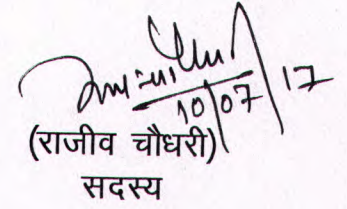 10/07/17
(राजीव चौधरी)
सदस्य